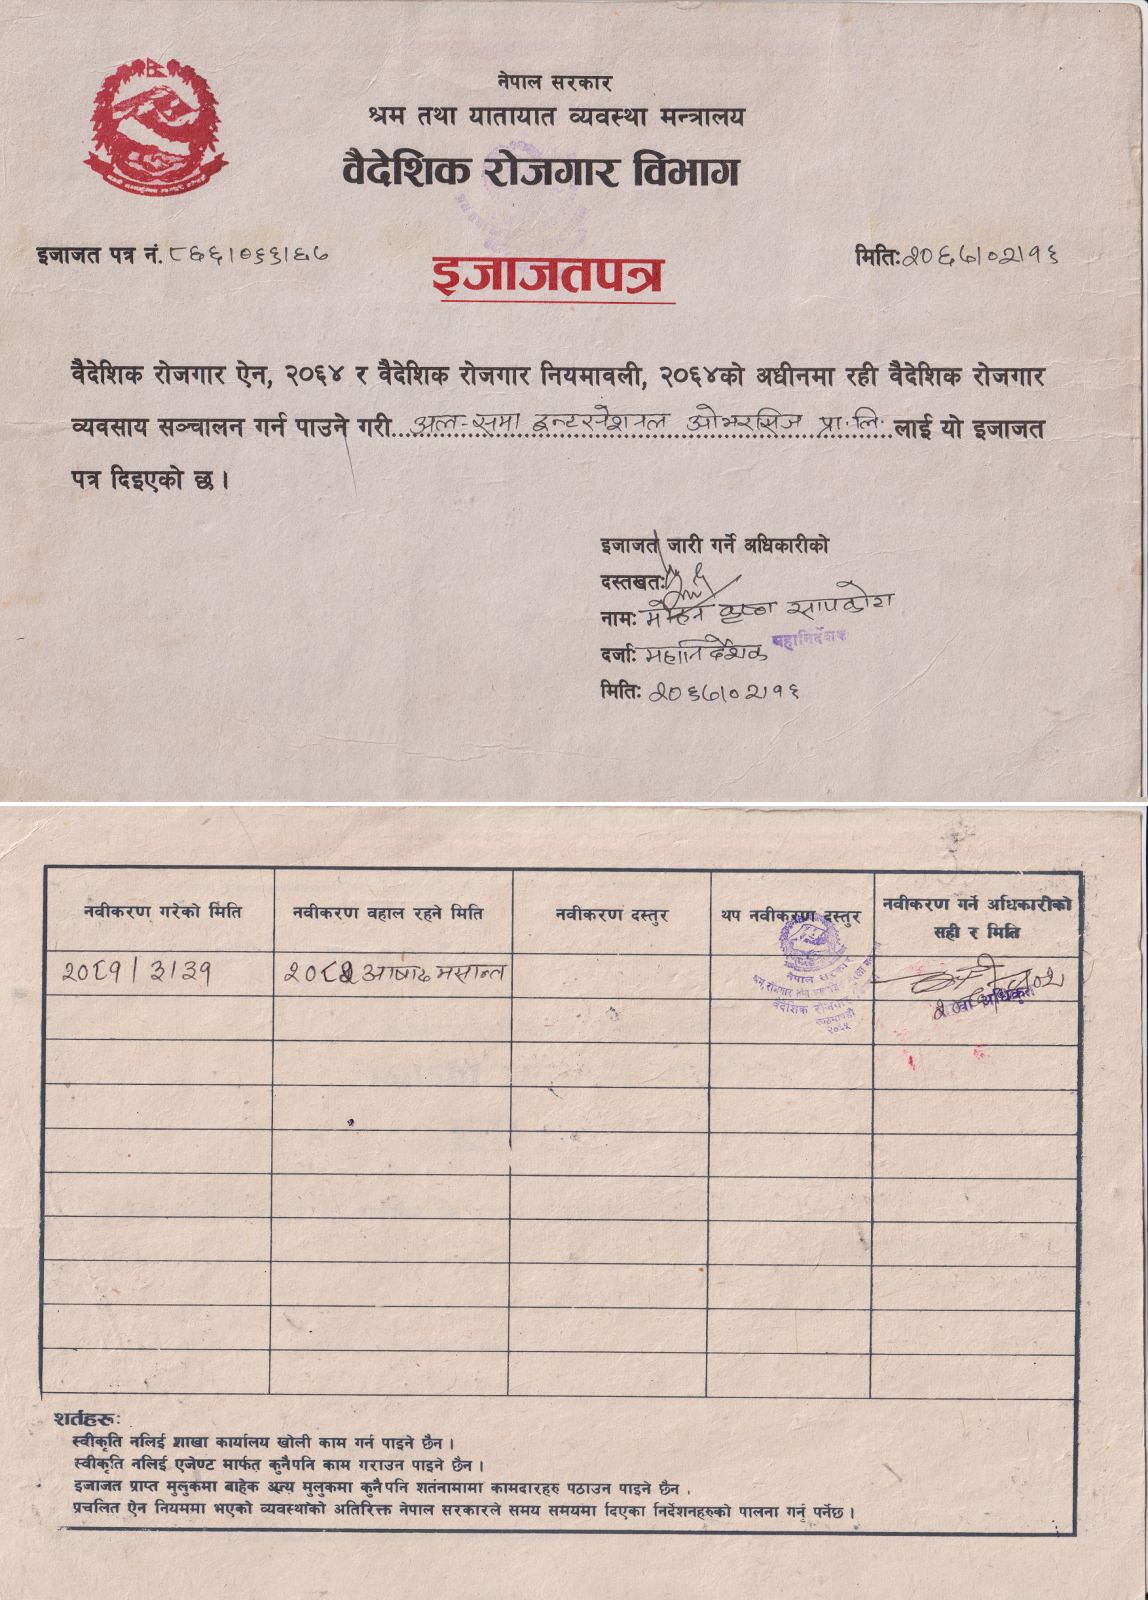 नेपाल सरकार
श्रम तथा यातायात व्यवस्था मन्त्रालय
वैदेशिक रोजगार विभाग
इजाजत पत्र नं. ८६६।०६६।६७
मितिः २०६७।०२।१६
इजाजतपत्र
वैदेशिक रोजगार ऐन, २०६४ र वैदेशिक रोजगार नियमावली, २०६४को अधीनमा रही वैदेशिक रोजगार
व्यवसाय सञ्चालन गर्न पाउने गरी अल-समा इन्टरनेशनल ओभरसिज प्रा.लि. लाई यो इजाजत
पत्र दिइएको छ ।
इजाजत जारी गर्ने अधिकारीको
दस्तखतः
नामः मोहन कृष्ण सापकोटा
दर्जाः महानिर्देशक महानिर्देशक
मितिः २०६७।०२।१६
नवीकरण गरेको मिति नवीकरण वहाल रहने मिति नवीकरण दस्तुर थप नवीकरण दस्तुर नवीकरण गर्ने अधिकारीको
सही र मिति
२०८१।३।३१ २०८२ आषाढ मसान्त
नेपाल सरकार
वैदेशिक रोजगार
अधिकृत
शर्तहरूः
स्वीकृति नलिई शाखा कार्यालय खोली काम गर्न पाइने छैन ।
स्वीकृति नलिई एजेण्ट मार्फत कुनैपनि काम गराउन पाइने छैन ।
इजाजत प्राप्त मुलुकमा बाहेक अन्य मुलुकमा कुनैपनि शर्तनामामा कामदारहरु पठाउन पाइने छैन .
प्रचलित ऐन नियममा भएको व्यवस्थाको अतिरिक्त नेपाल सरकारले समय समयमा दिएका निर्देशनहरुको पालना गर्नु पर्नेछ ।